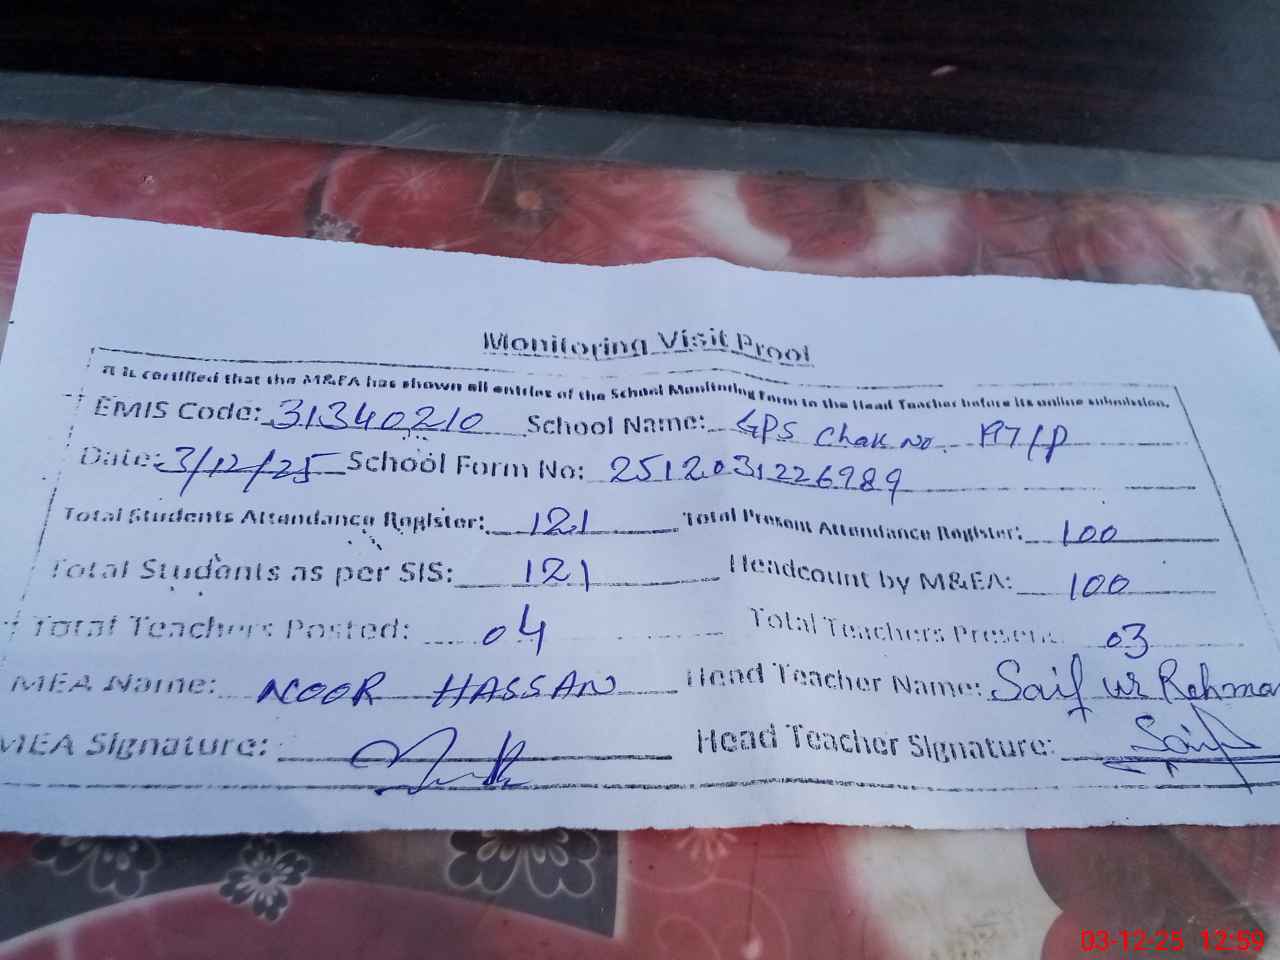 Monitoring Visit Proof
It is certified that the M&EA has shown all entries of the School Monitoring Form to the Head Teacher before its online submission.
EMIS Code: 31340210 School Name: GPS Chak No. 197/P
Date: 3/12/25 School Form No: 2512031226989
Total Students Attendance Register: 121 Total Present Attendance Register: 100
Total Students as per SIS: 121 Headcount by M&EA: 100
Total Teachers Posted: 04 Total Teachers Present: 03
MEA Name: NOOR HASSAN Head Teacher Name: Saif ur Rehma
MEA Signature: Head Teacher Signature: Saif
03-12-25 12:59